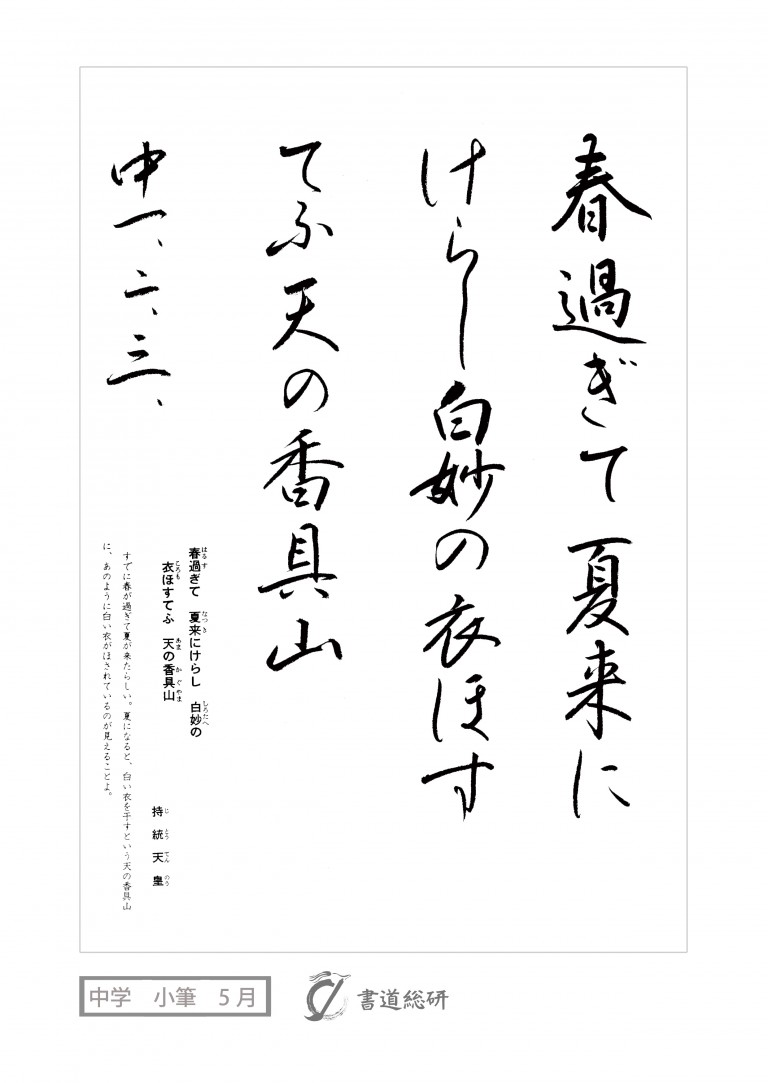 春過ぎて夏来に
けらし白妙の衣ほす
てふ天の香具山
中一、二、三、
春過ぎて 夏来にけらし 白妙の
はるす なつき しろたへ
衣ほすてふ 天の香具山
ころも あま かぐやま
持統天皇
じとうてんのう
すでに春が過ぎて夏が来たらしい。夏になると、白い衣を干すという天の香具山
に、あのように白い衣がほされているのが見えることよ。
中学 小筆 5月
書道総研